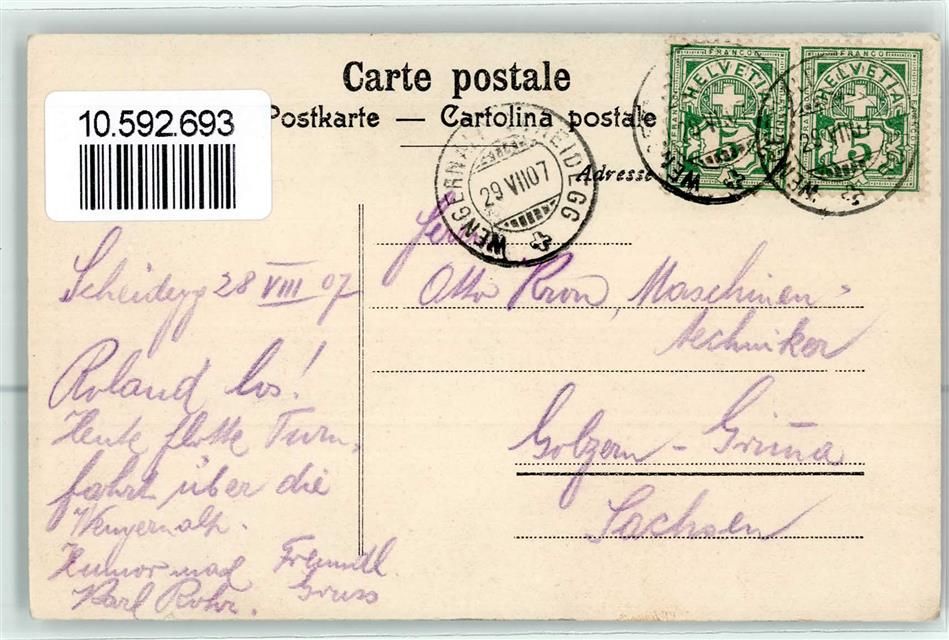 Carte postale
10.592.693
Postkarte — Cartolina postale
FRANCO
HELVETIA
5
FRANCO
HELVETIA
5
WENGERNALP SCHEIDEGG
29 VII 07
Adresse
Herrn
Otto Kron, Maschinen-
techniker
Golzern - Grima
Sachsen
Scheidegg 28 VIII 07
Roland los!
Heute flotte Turn-
fahrt über die
Wengernalp.
Humor mad Freundl.
Karl Rohr. Gruss